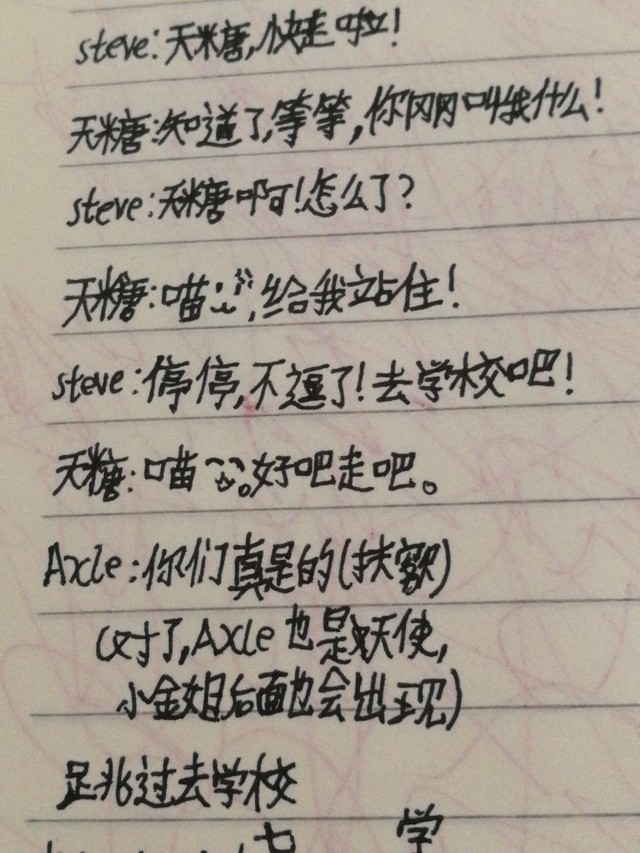 steve:天米唐,快走啦!
天糖:知道了,等等,你刚刚叫我什么!
steve:天糖啊!怎么了?
天糖:喵,给我站住!
steve:停停,不逗了!去学校吧!
天糖:喵。好吧走吧。
Axle:你们真是的(扶额)
(对了,Axle也是天使,
小金姐后面也会出现)
跳过去学校
学